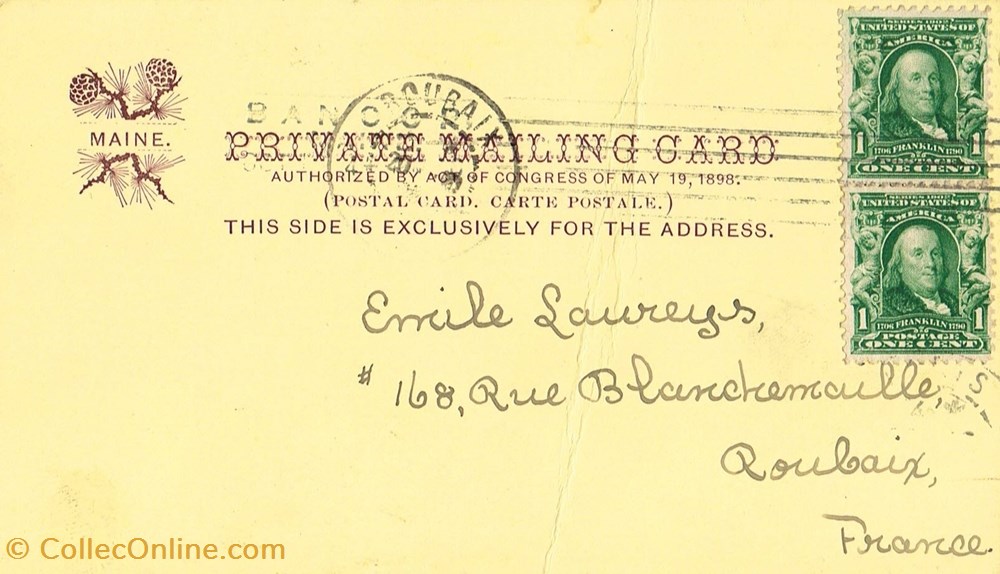 MAINE.
BANGO
ROUBAIX
PRIVATE MAILING CARD
AUTHORIZED BY ACT OF CONGRESS OF MAY 19, 1898.
(POSTAL CARD. CARTE POSTALE.)
THIS SIDE IS EXCLUSIVELY FOR THE ADDRESS.
SERIES 1902
UNITED STATES OF
AMERICA
1 1706 FRANKLIN 1790 1
POSTAGE
ONE CENT
SERIES 1902
UNITED STATES OF
AMERICA
1 1706 FRANKLIN 1790 1
POSTAGE
ONE CENT
Emile Laureys,
# 168, Rue Blanchemaille,
Roubaix,
France.
© CollecOnline.com